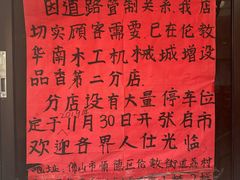 因道路管制关系,我店
切实顾客需要已在伦教
华南木工机械城增设
品自第二分店.
分店设有大量停车位
定于11月30日开张启市
欢迎各界人仕光临
地址:佛山市顺德区伦教街道荔村